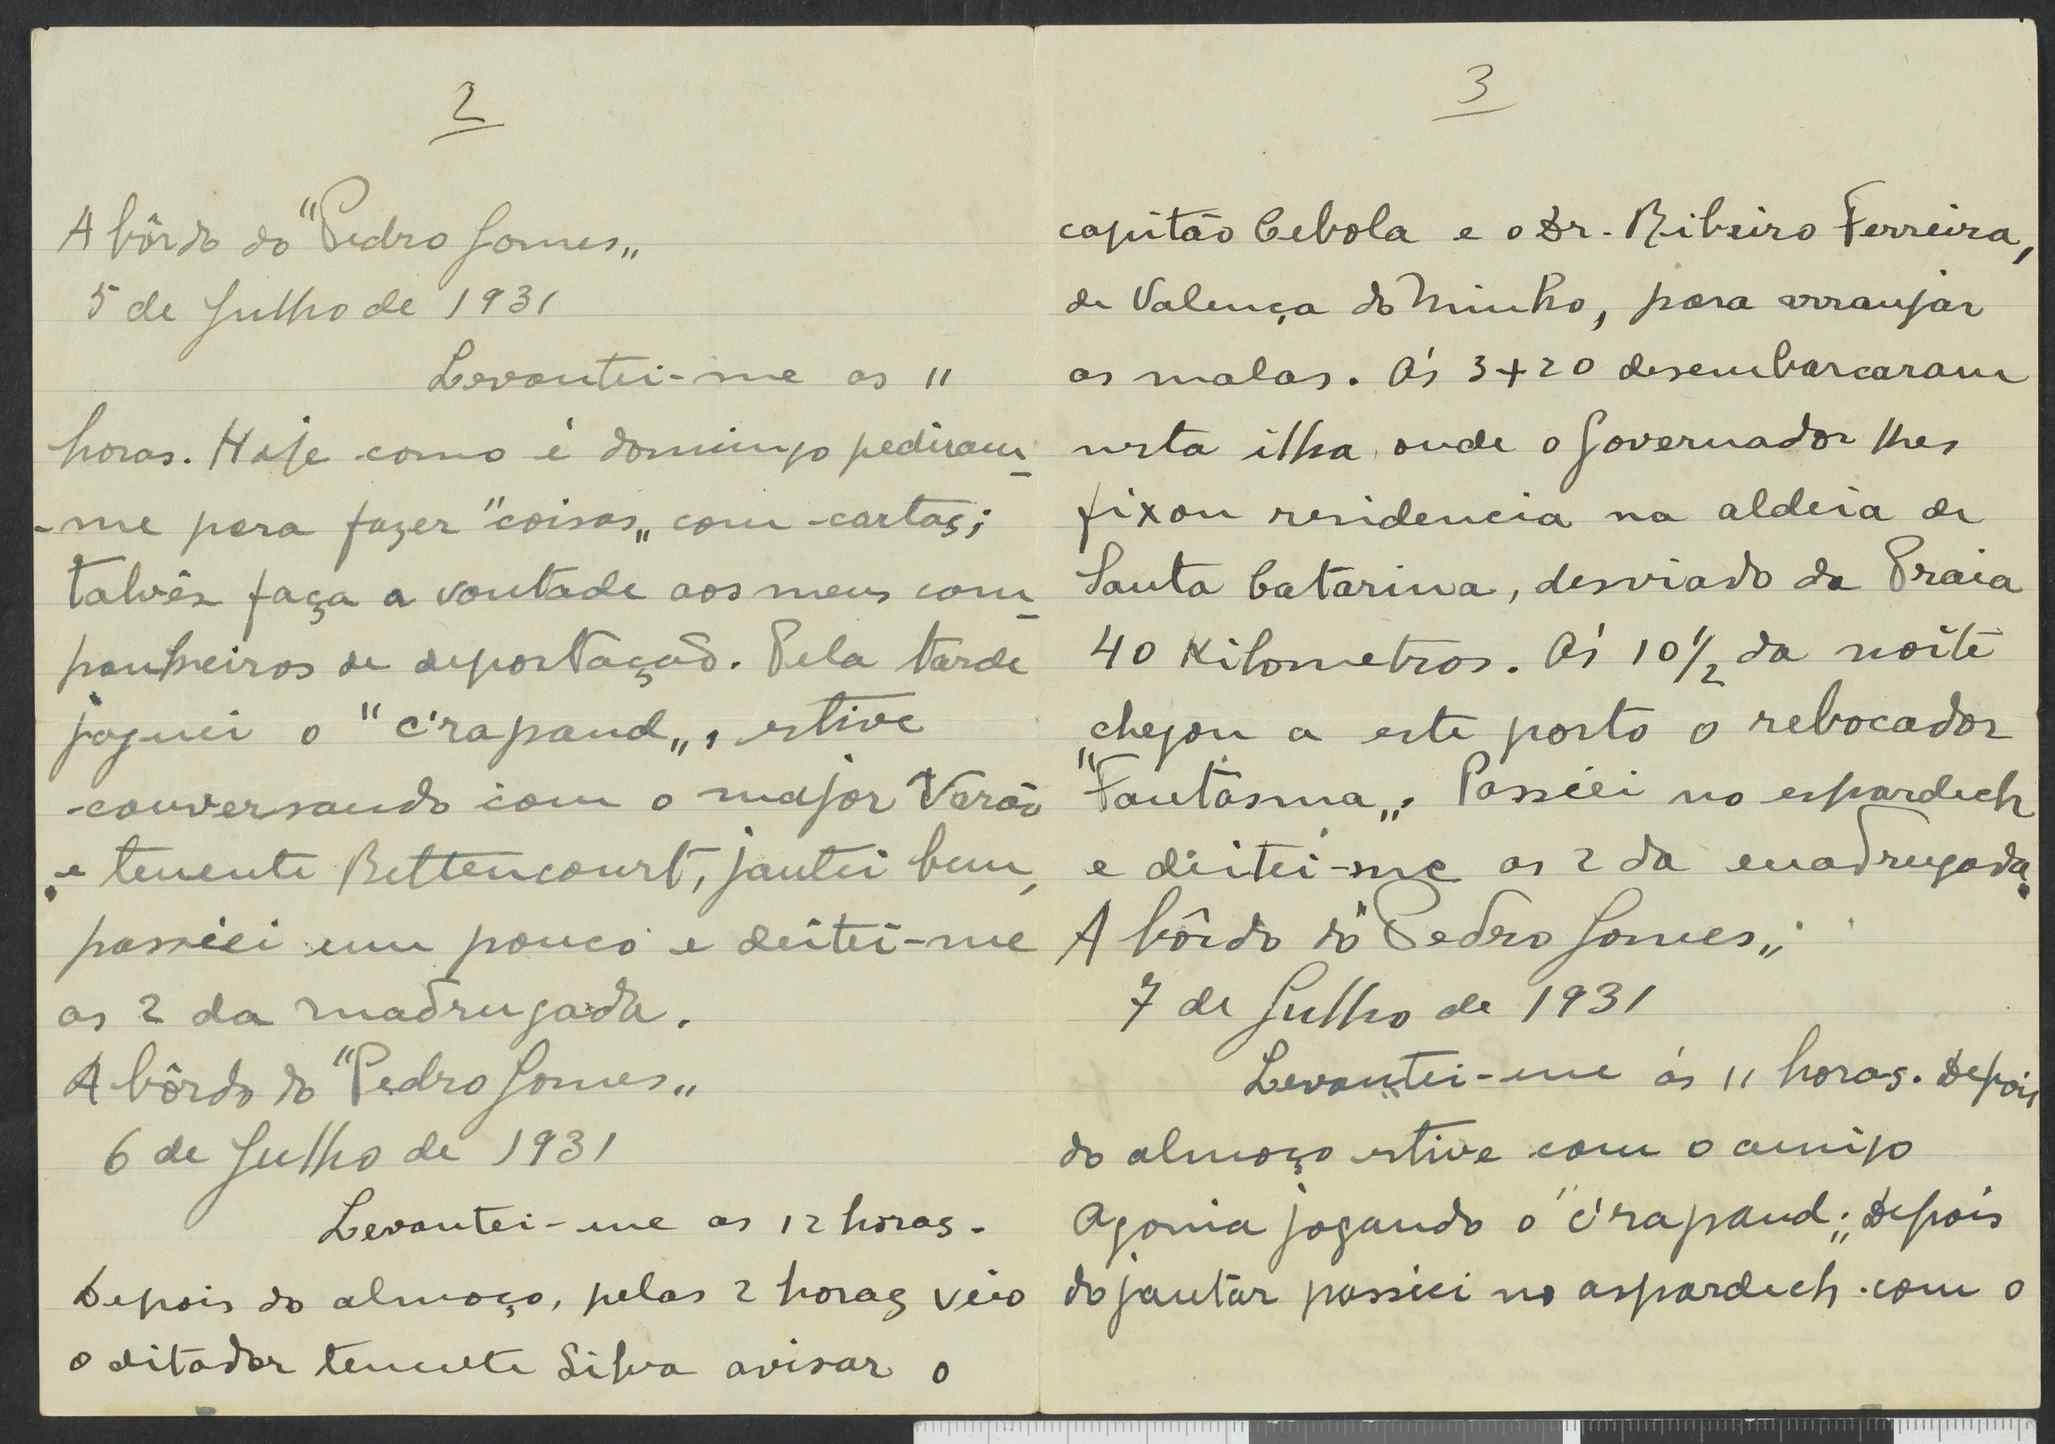 2
A bôrdo do "Pedro Gomes„
5 de Julho de 1931
Levantei-me as 11
horas. Hoje como é domingo pediram-
-me para fazer "coisas„ com cartas;
talvês faça a vontade aos meus com-
panheiros de deportação. Pela tarde
joguei o "c'rapaud„, estive
conversando com o major Varão
e tenente Bettencourt, jantei bem,
passiei um pouco e deitei-me
as 2 da madrugada.
A bôrdo do "Pedro Gomes„
6 de Julho de 1931
Levantei-me as 12 horas.
Depois do almoço, pelas 2 horas veio
o ditador tenente Silva avisar o
3
capitão Cebola e o Dr. Ribeiro Ferreira,
de Valença do Minho, para arranjar
as malas. Ás 3+20 desembarcaram
nesta ilha onde o Governador lhes
fixou residencia na aldeia de
Santa Catarina, desviado da Praia
40 Kilometros. Ás 10 1/2 da noite
chegou a este porto o rebocador
"Fantasma„. Passiei no espardech
e deitei-me as 2 da madrugada.
A bôrdo do "Pedro Gomes„
7 de Julho de 1931
Levantei-me ás 11 horas. Depois
do almoço estive com o amigo
Agonia jogando o "c'rapaud„; Depois
do jantar passiei no aspardech com o